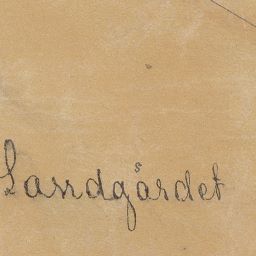 Landgårdet